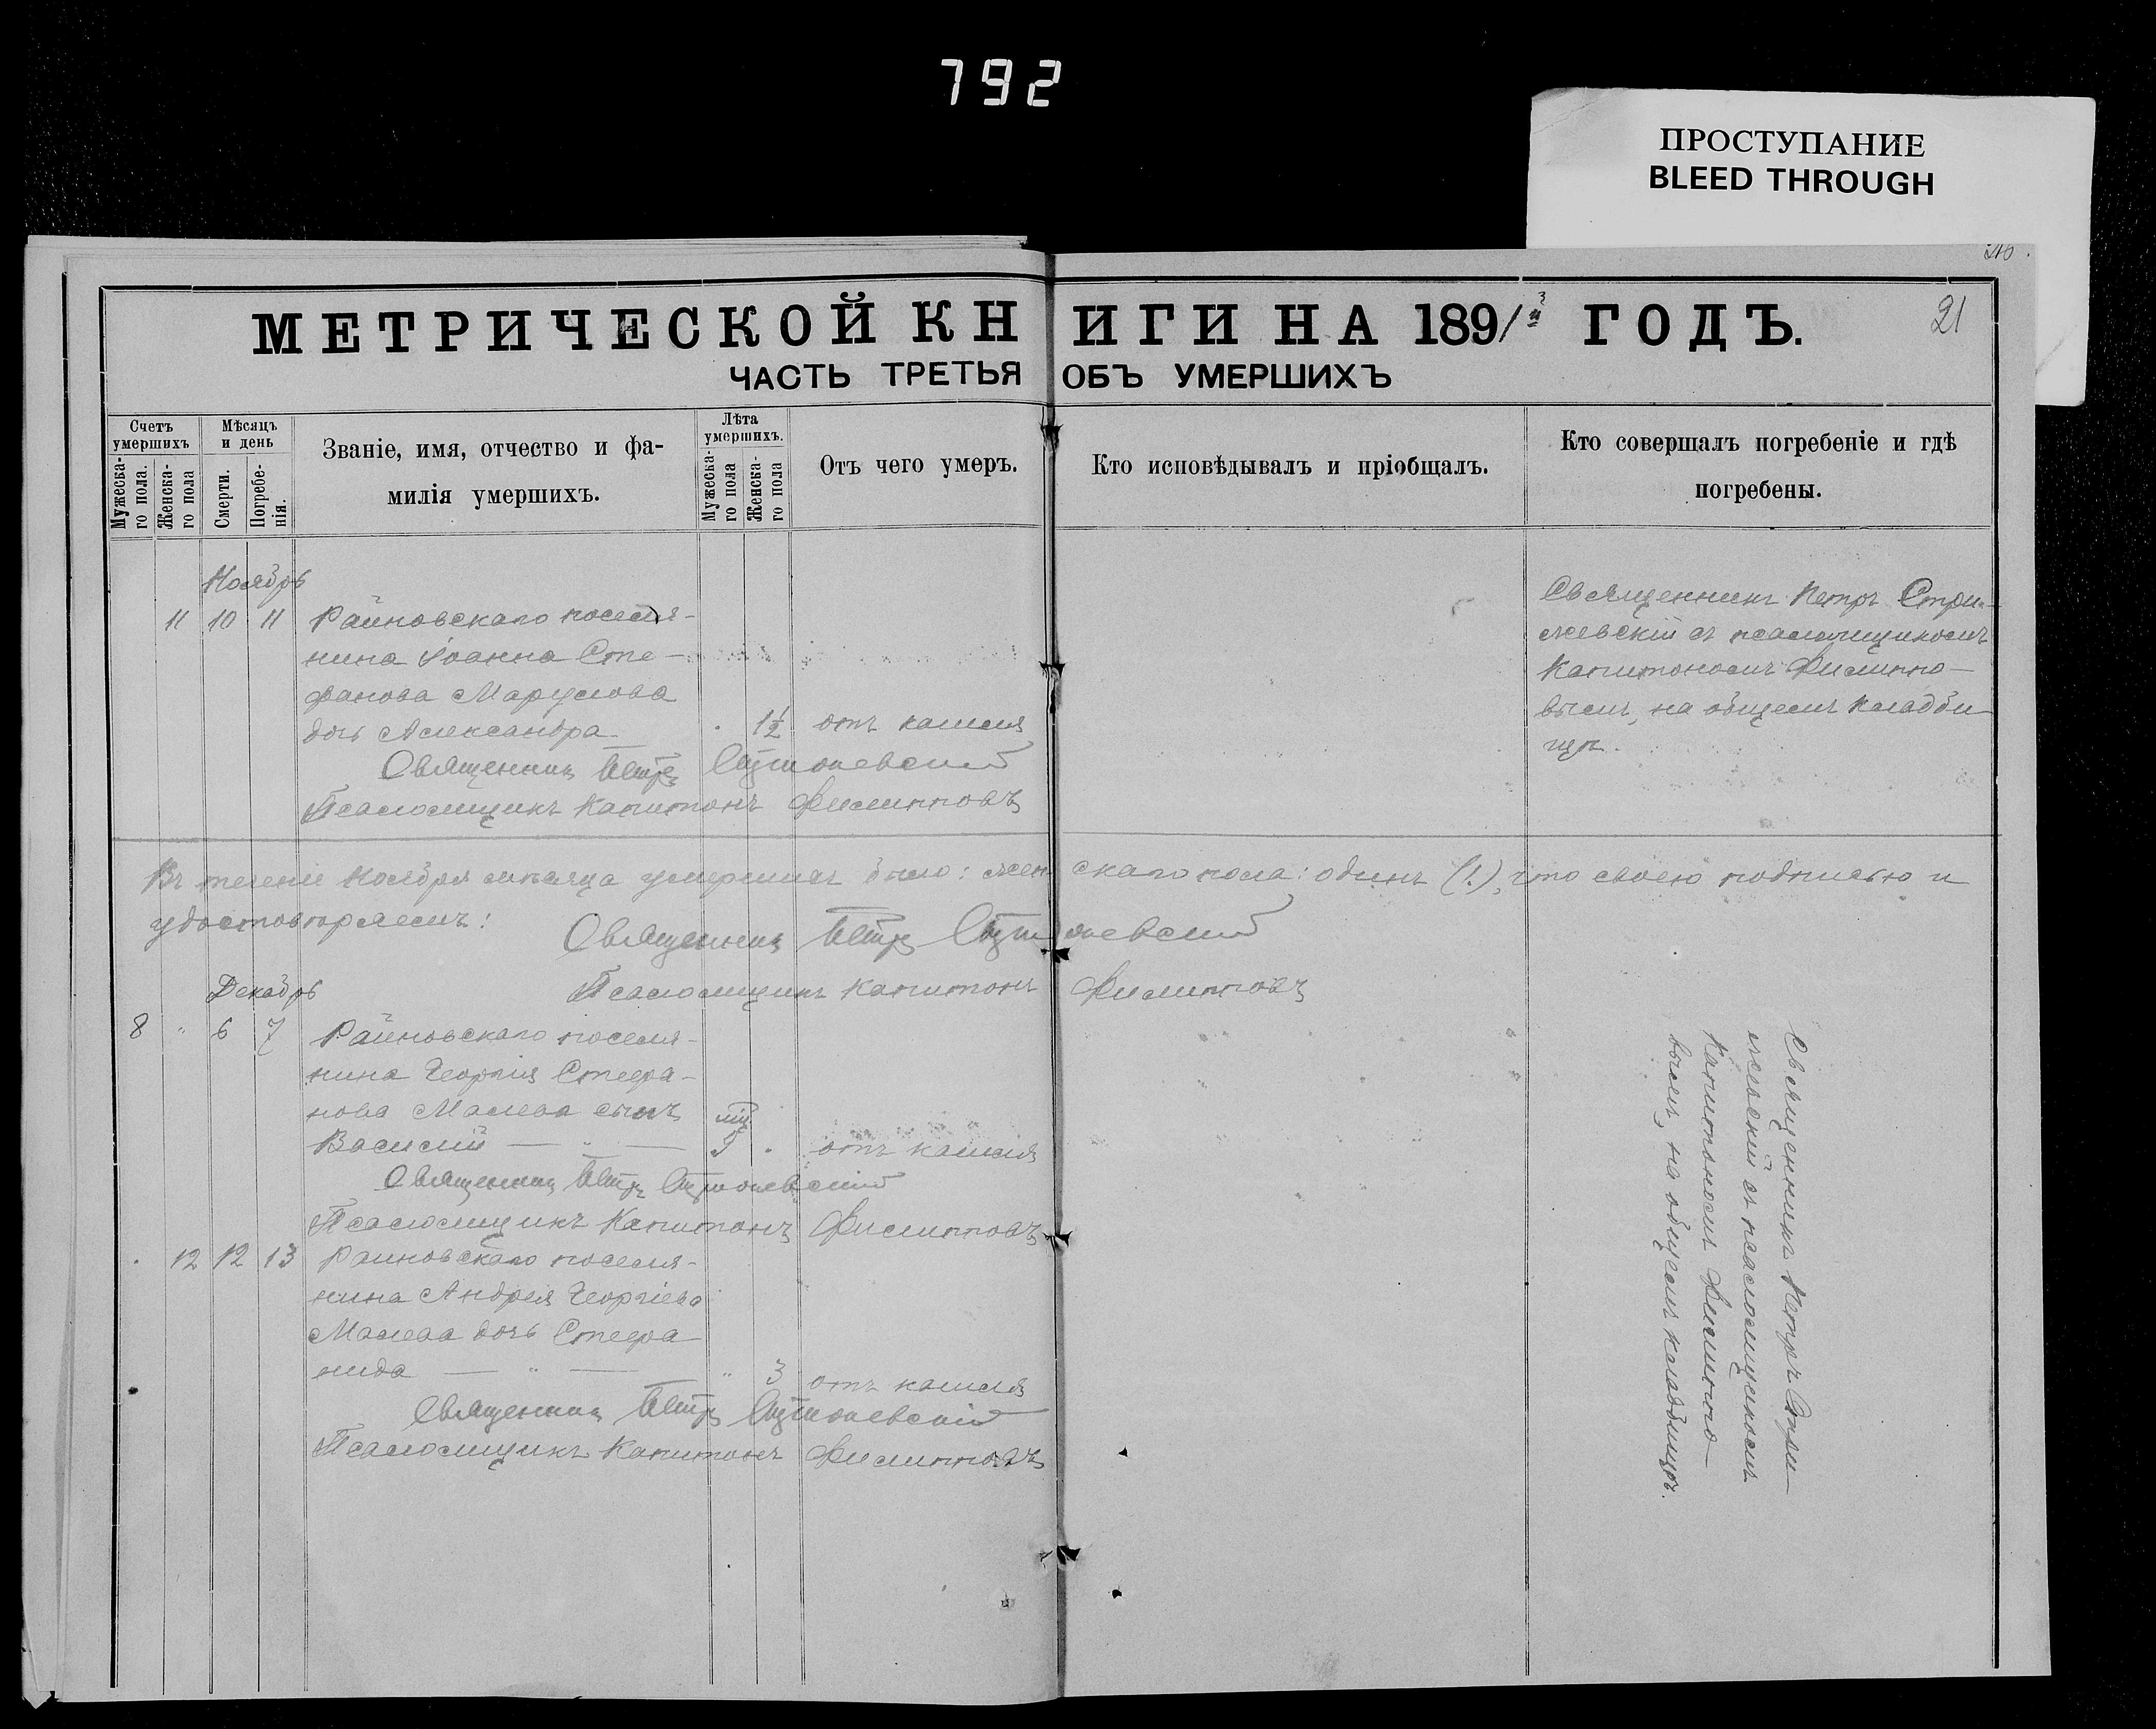 792
ПРОСТУПАНИЕ
BLEED THROUGH
21
МЕТРИЧЕСКОЙ КНИГИ НА 1893 ГОДЪ.
ЧАСТЬ ТРЕТЬЯ ОБЪ УМЕРШИХЪ
Счетъ умершихъ
Мужеска-го пола.
Женска-го пола
Мѣсяцъ и день
Смерти.
Погребе-нія.
Званіе, имя, отчество и фа-
милія умершихъ.
Лѣта умершихъ.
Мужеска-го пола
Женска-го пола
Отъ чего умеръ.
Кто исповѣдывалъ и пріобщалъ.
Кто совершалъ погребеніе и гдѣ
погребены.
Ноябрь
11 10 11 Райновскаго поселя-
нина Іоанна Сте-
фанова
дочь Александра 1½ отъ кашля
Священникъ Петръ Стрижевскій
Псаломщикъ Капитонъ Филипповъ
Священникъ Петръ Стри-
жевскій съ псаломщикомъ
Капитономъ Филиппо-
вымъ, на общемъ кладби-
щѣ.
Въ теченіе Ноября мѣсяца умершихъ было: женскаго пола: одинъ (1.), что своею подписью и
удостовѣряемъ:
Священникъ Петръ Стрижевскій
Псаломщикъ Капитонъ Филипповъ
Декабрь
8 " 6 7 Райновскаго поселя-
нина Георгія Стефа-
нова Малева сынъ
Василій — " — 5 отъ кашля
Священникъ Петръ Стрижевскій
Псаломщикъ Капитонъ Филипповъ
12 12 13 Райновскаго поселя-
нина Андрея Георгіева
Малева дочь Стефа-
нида — " — " 3 отъ кашля
Священникъ Петръ Стрижевскій
Псаломщикъ Капитонъ Филипповъ
Священникъ Петръ Стри-
жевскій съ псаломщикомъ
Капитономъ Филиппо-
вымъ, на общемъ кладбищѣ.